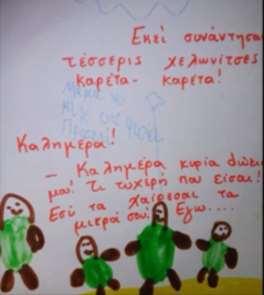 Εκεί συνάντησα
τέσσερις χελωνίτσες
καρέτα- καρέτα!
Καλημέρα!
- Καλημέρα κυρία
μου! Τι τυχερή που είσαι!
Εσύ τα χαίρεσαι τα
μικρά σου. Εγώ....